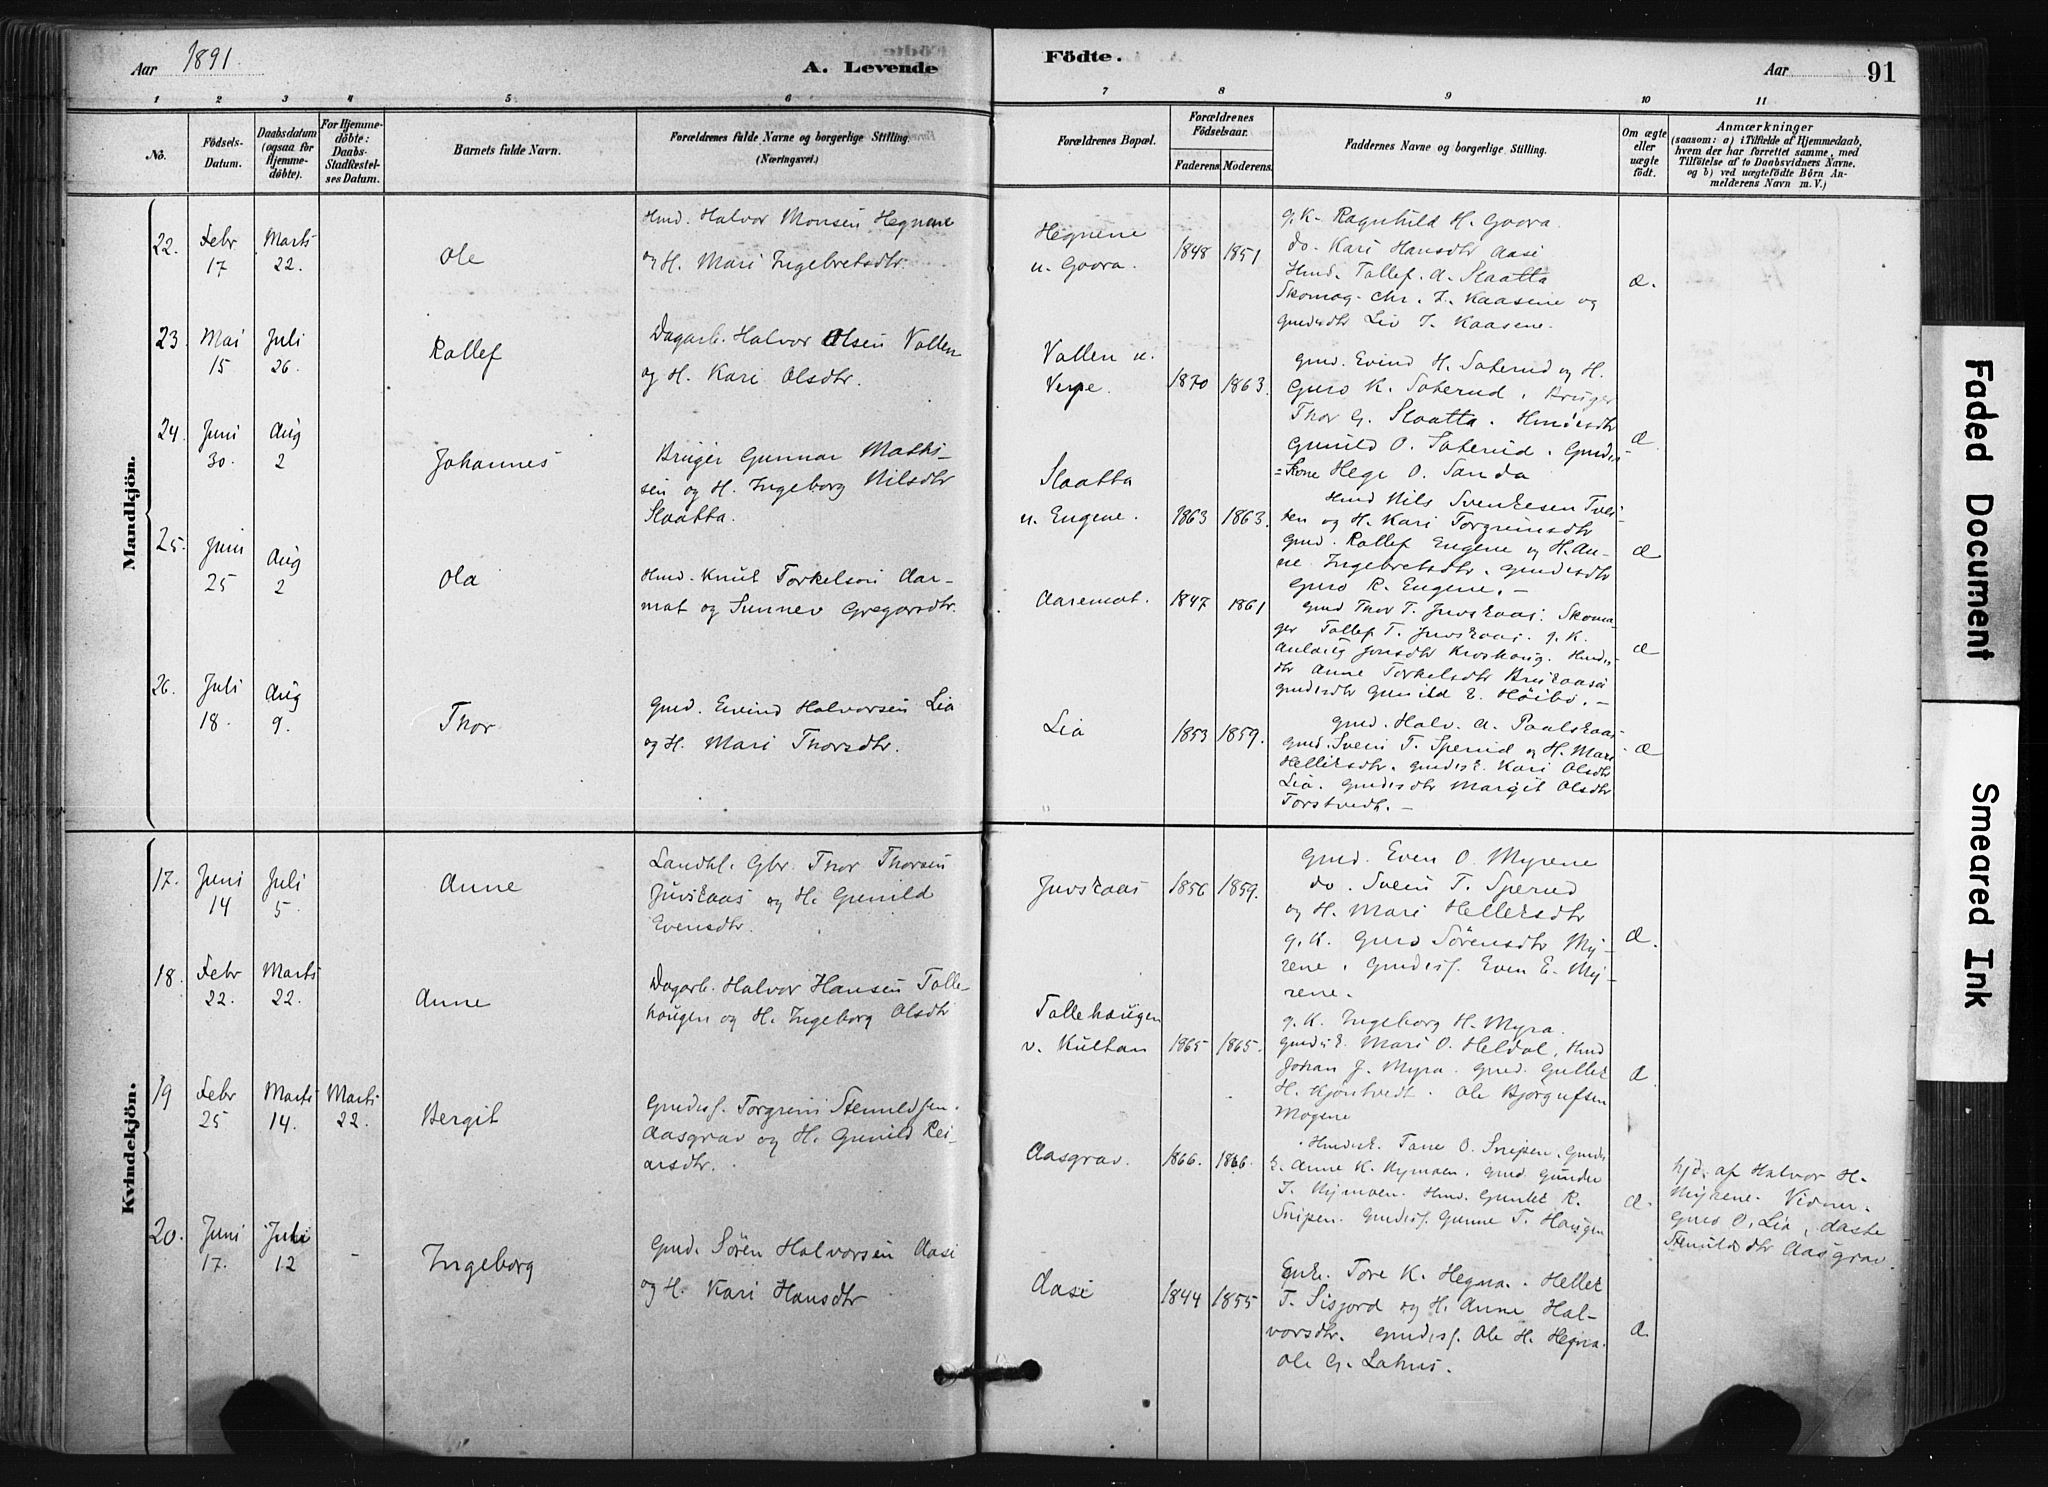 Aar 1891.
A. Levende
Födte.
Aar
91
1 2 3 4 5 6 7 8 9 10 11
No.
Födsels-
Datum.
Daabsdatum
(ogsaa for
Hjemme-
döbte).
For Hjemme-
döbte:
Daabs-
Stadfestel-
ses Datum.
Barnets fulde Navn.
Forældrenes fulde Navne og borgerlige Stilling.
(Næringsvei.)
Forældrenes Bopæl.
Forældrenes
Födselsaar.
Faderens. Moderens.
Faddernes Navne og borgerlige Stilling.
Om ægte
eller
uægte
födt.
Anmærkninger
(saasom: a) i Tilfælde af Hjemmedaab,
hvem der har forrettet samme, med
Tilföielse af to Daabsvidners Navne.
og b) ved uægtefödte Börn An-
melderens Navn m. V.)
Mandkjön.
22. Febr 17
Marts 22.
Ole
Hmd. Halvor Monsen Hegnene
og H. Mari Ingebretsdtr.
Hegnene
u. Goora.
1848 1851
g.K. Ragnhild H. Goora.
do. Kari Hansdtr Aasi
Hmd. Tallef. A. Slaatta
Skomag. Chr. J. Kaasene og
gmdsdtr Liv J. Kaasene.
æ.
23. Mai 15
Juli 26.
Rollef
Dagarb. Halvor Olsen Vallen
og H. Kari Olsdtr.
Vallen u.
1870 1863.
gmd. Evind H. Saterud og H.
Guro K. Saterud. Bruger
Thor G. Slaatta. Hmdsdtr
Gunild O. Saterud. Gmds-
=kone Hege O. Sanda
æ
24. Juni 30.
Aug 2
Johannes
Bruger Gunnar Mathi-
sen og H. Ingeborg Nilsdtr
Slaatta.
Slaatta
u. Eugene.
1863 1863.
Hmd Nils Svenkesen Tvei-
ten og H. Kari Torgrimsdtr
gmd. Rollef Eugene og H. An-
ne Ingebretsdtr. gmdsdtr
Guro R. Eugene.
æ
25. Juni 25
Aug 2
Ola
Hmd. Knut Torkelsen Aar-
mot og Sunnev Gregarsdtr.
Aaremot.
1847 1861
gmd Thor T. Juvskaas. Skoma-
ger Tallef T. Juvskaas. g.K.
Jonsdtr Kroshaug. Hmds-
dtr Anne Torkelsdtr
gmdsdtr Gunild E. Höibö.
æ
26. Juli 18.
Aug 9.
Thor
Gmd. Eivind Halvorsen Lia
og H. Mari Thorsdtr.
Lia
1853 1859.
gmd. Halv. A. Paalskaas
gmd. Svein T. Sperud og H. Mari
Helleksdtr. gmdsk. Kari Olsdtr
Lia. gmdsdtr Margit Olsdtr
Torstvedt.
æ
Kvindekjön.
17. Juni 14
Juli 5.
Anne
Landhl. Gbr. Thor Thorsen
Juvskaas og H. Gunild
Evensdtr.
Juvskaas
1856 1859.
Gmd. Even O. Myrene
do. Svein T. Sperud
og H. Mari Helleksdtr
g.K. Guro Sörensdtr My-
rene. Gmdss. Even E. My-
rene.
æ.
18. Febr 22.
Marts 22.
Anne
Dagarb. Halvor Hansen Talle-
haugen og H. Ingeborg Olsdtr
Tallehaugen
v. Kultan
1865 1865.
g.K. Ingeborg H. Myra.
Gmdsk. Mari O. Heldal, Hmd
Johan J. Myra. Gmd. Gullek
H. Kjörstvedt. Ole Bjorgufsen
Mogene
æ.
19 Febr 25
Marts 14.
Marts 22.
Bergit
Gmdss. Torgrim Stenuldsen.
Aasgrav og H. Gunild Rei-
arsdtr.
Aasgrav.
1866. 1866.
Hmdsk. Tone O. Snipen. Gmds
k. Anne K. Nymoen. Gmd Gunder
J. Nymoen. Hmd. Gunlek R.
Snipen. Gmdss. Gunne T. Haugen
æ.
hjd. af Halvor H.
Myrene. Vidner.
Guro O. Lia, Aaste
Stenuldsdtr Aasgrav.
20. Juni 17.
Juli 12
-
Ingeborg
Gmd. Sören Halvorsen Aasi
og H. Kari Hansdtr
Aasi
1844 1855
Enk. Tore K. Hegna. Hellek
T. Sisjord og H. Anne Hal-
vorsdtr. gmdss. Ole H. Hegna.
Ole G. Lahus.
æ.
Faded Document
Smeared Ink